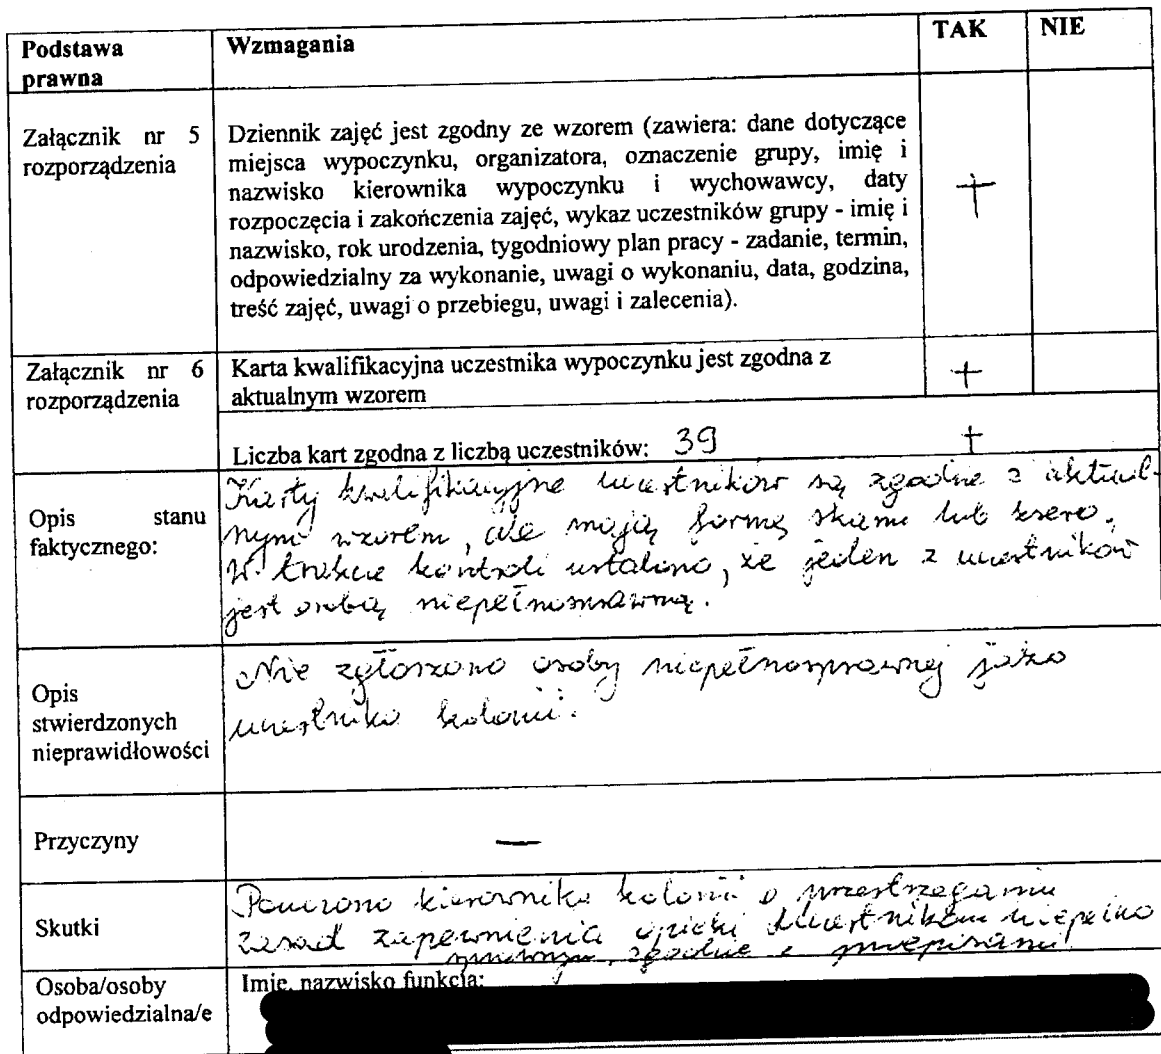 Podstawa prawna
Wzmagania
TAK
NIE
Załącznik nr 5
rozporządzenia
Dziennik zajęć jest zgodny ze wzorem (zawiera: dane dotyczące
miejsca wypoczynku, organizatora, oznaczenie grupy, imię i
nazwisko kierownika wypoczynku i wychowawcy, daty
rozpoczęcia i zakończenia zajęć, wykaz uczestników grupy - imię i
nazwisko, rok urodzenia, tygodniowy plan pracy - zadanie, termin,
odpowiedzialny za wykonanie, uwagi o wykonaniu, data, godzina,
treść zajęć, uwagi o przebiegu, uwagi i zalecenia).
+
Załącznik nr 6
rozporządzenia
Karta kwalifikacyjna uczestnika wypoczynku jest zgodna z
aktualnym wzorem
+
Liczba kart zgodna z liczbą uczestników: 39
+
Opis stanu
faktycznego:
Karty kwalifikacyjne uczestników są zgodne z aktual-
nym wzorem, ale mają formę skanu lub ksero.
W trakcie kontroli ustalono, że jeden z uczestników
jest osobą niepełnosprawną.
Opis
stwierdzonych
nieprawidłowości
Nie zgłoszono osoby niepełnosprawnej jako
uczestnika kolonii.
Przyczyny
—
Skutki
Pouczono kierownika kolonii o przestrzeganiu
zasad zapewnienia opieki uczestnikom niepełno
sprawnym, zgodnie z przepisami
Osoba/osoby
odpowiedzialna/e
Imię, nazwisko funkcja: